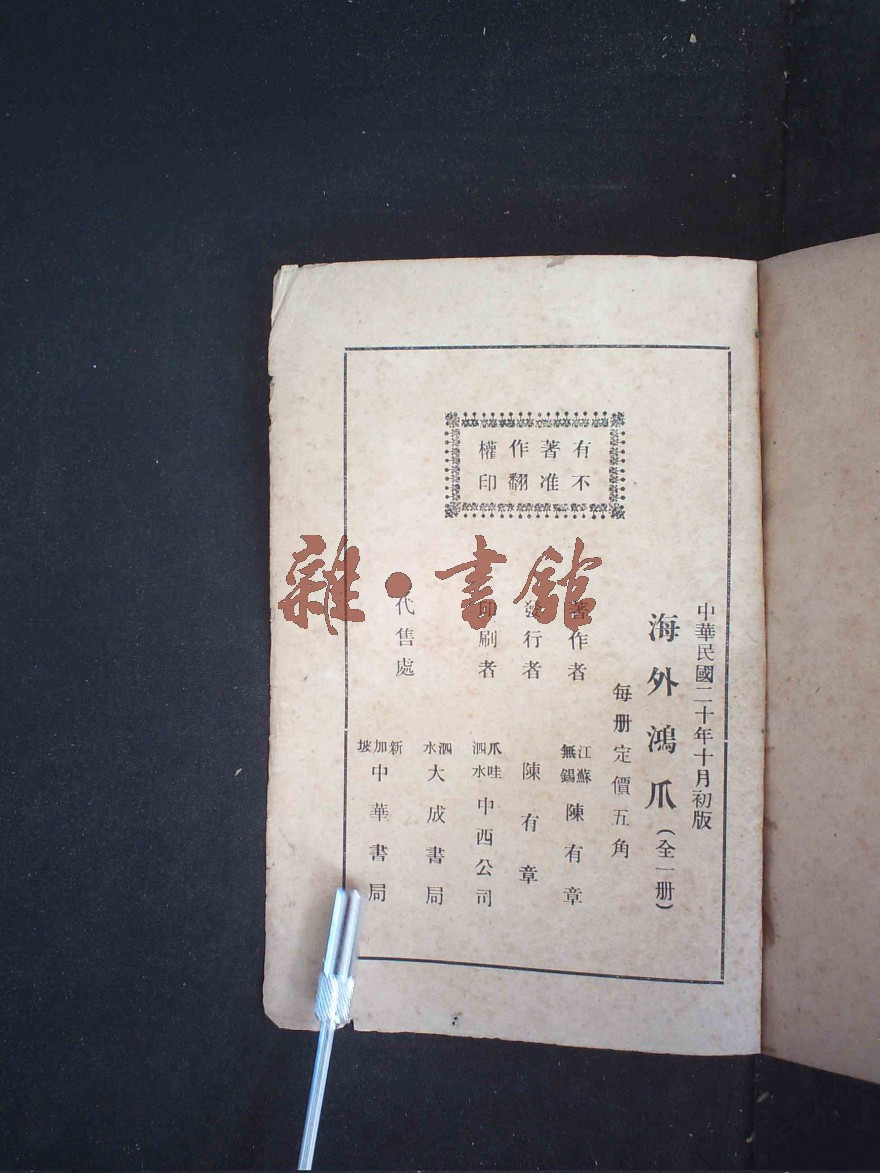 有著作權
不准翻印
中華民國二十年十月初版
海外鴻爪(全一册)
每册定價五角
著作者 江蘇無錫 陳有章
發行者 陳有章
印刷者 爪哇泗水 中西公司
代售處 泗水 大成書局
新加坡 中華書局
雜·書館